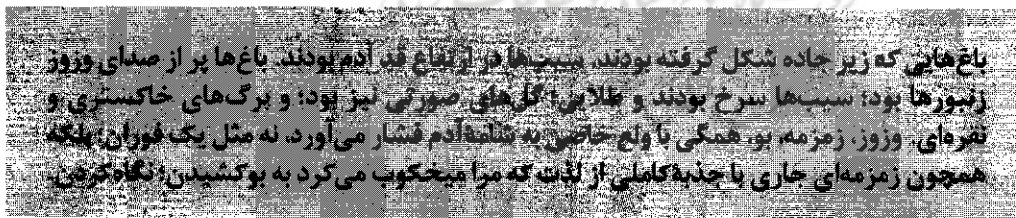 باغ‌هایی که زیر جاده شکل گرفته بودند، سیب‌ها در ارتفاع قد آدم بودند. باغ‌ها پر از صدای وزوز
زنبورها بود؛ سیب‌ها سرخ بودند و طلایی؛ گل‌های صورتی نیز بود؛ و برگ‌های خاکستری و
نقره‌ای. وزوز، زمزمه، بو، همگی با ولع خاصی به شامهٔ آدم فشار می‌آورد، نه مثل یک فوران؛ بلکه
همچون زمزمه‌ای جاری با جذبهٔ کاملی از لذت که مرا میخکوب می‌کرد به بوکشیدن؛ نگاه‌کردن.